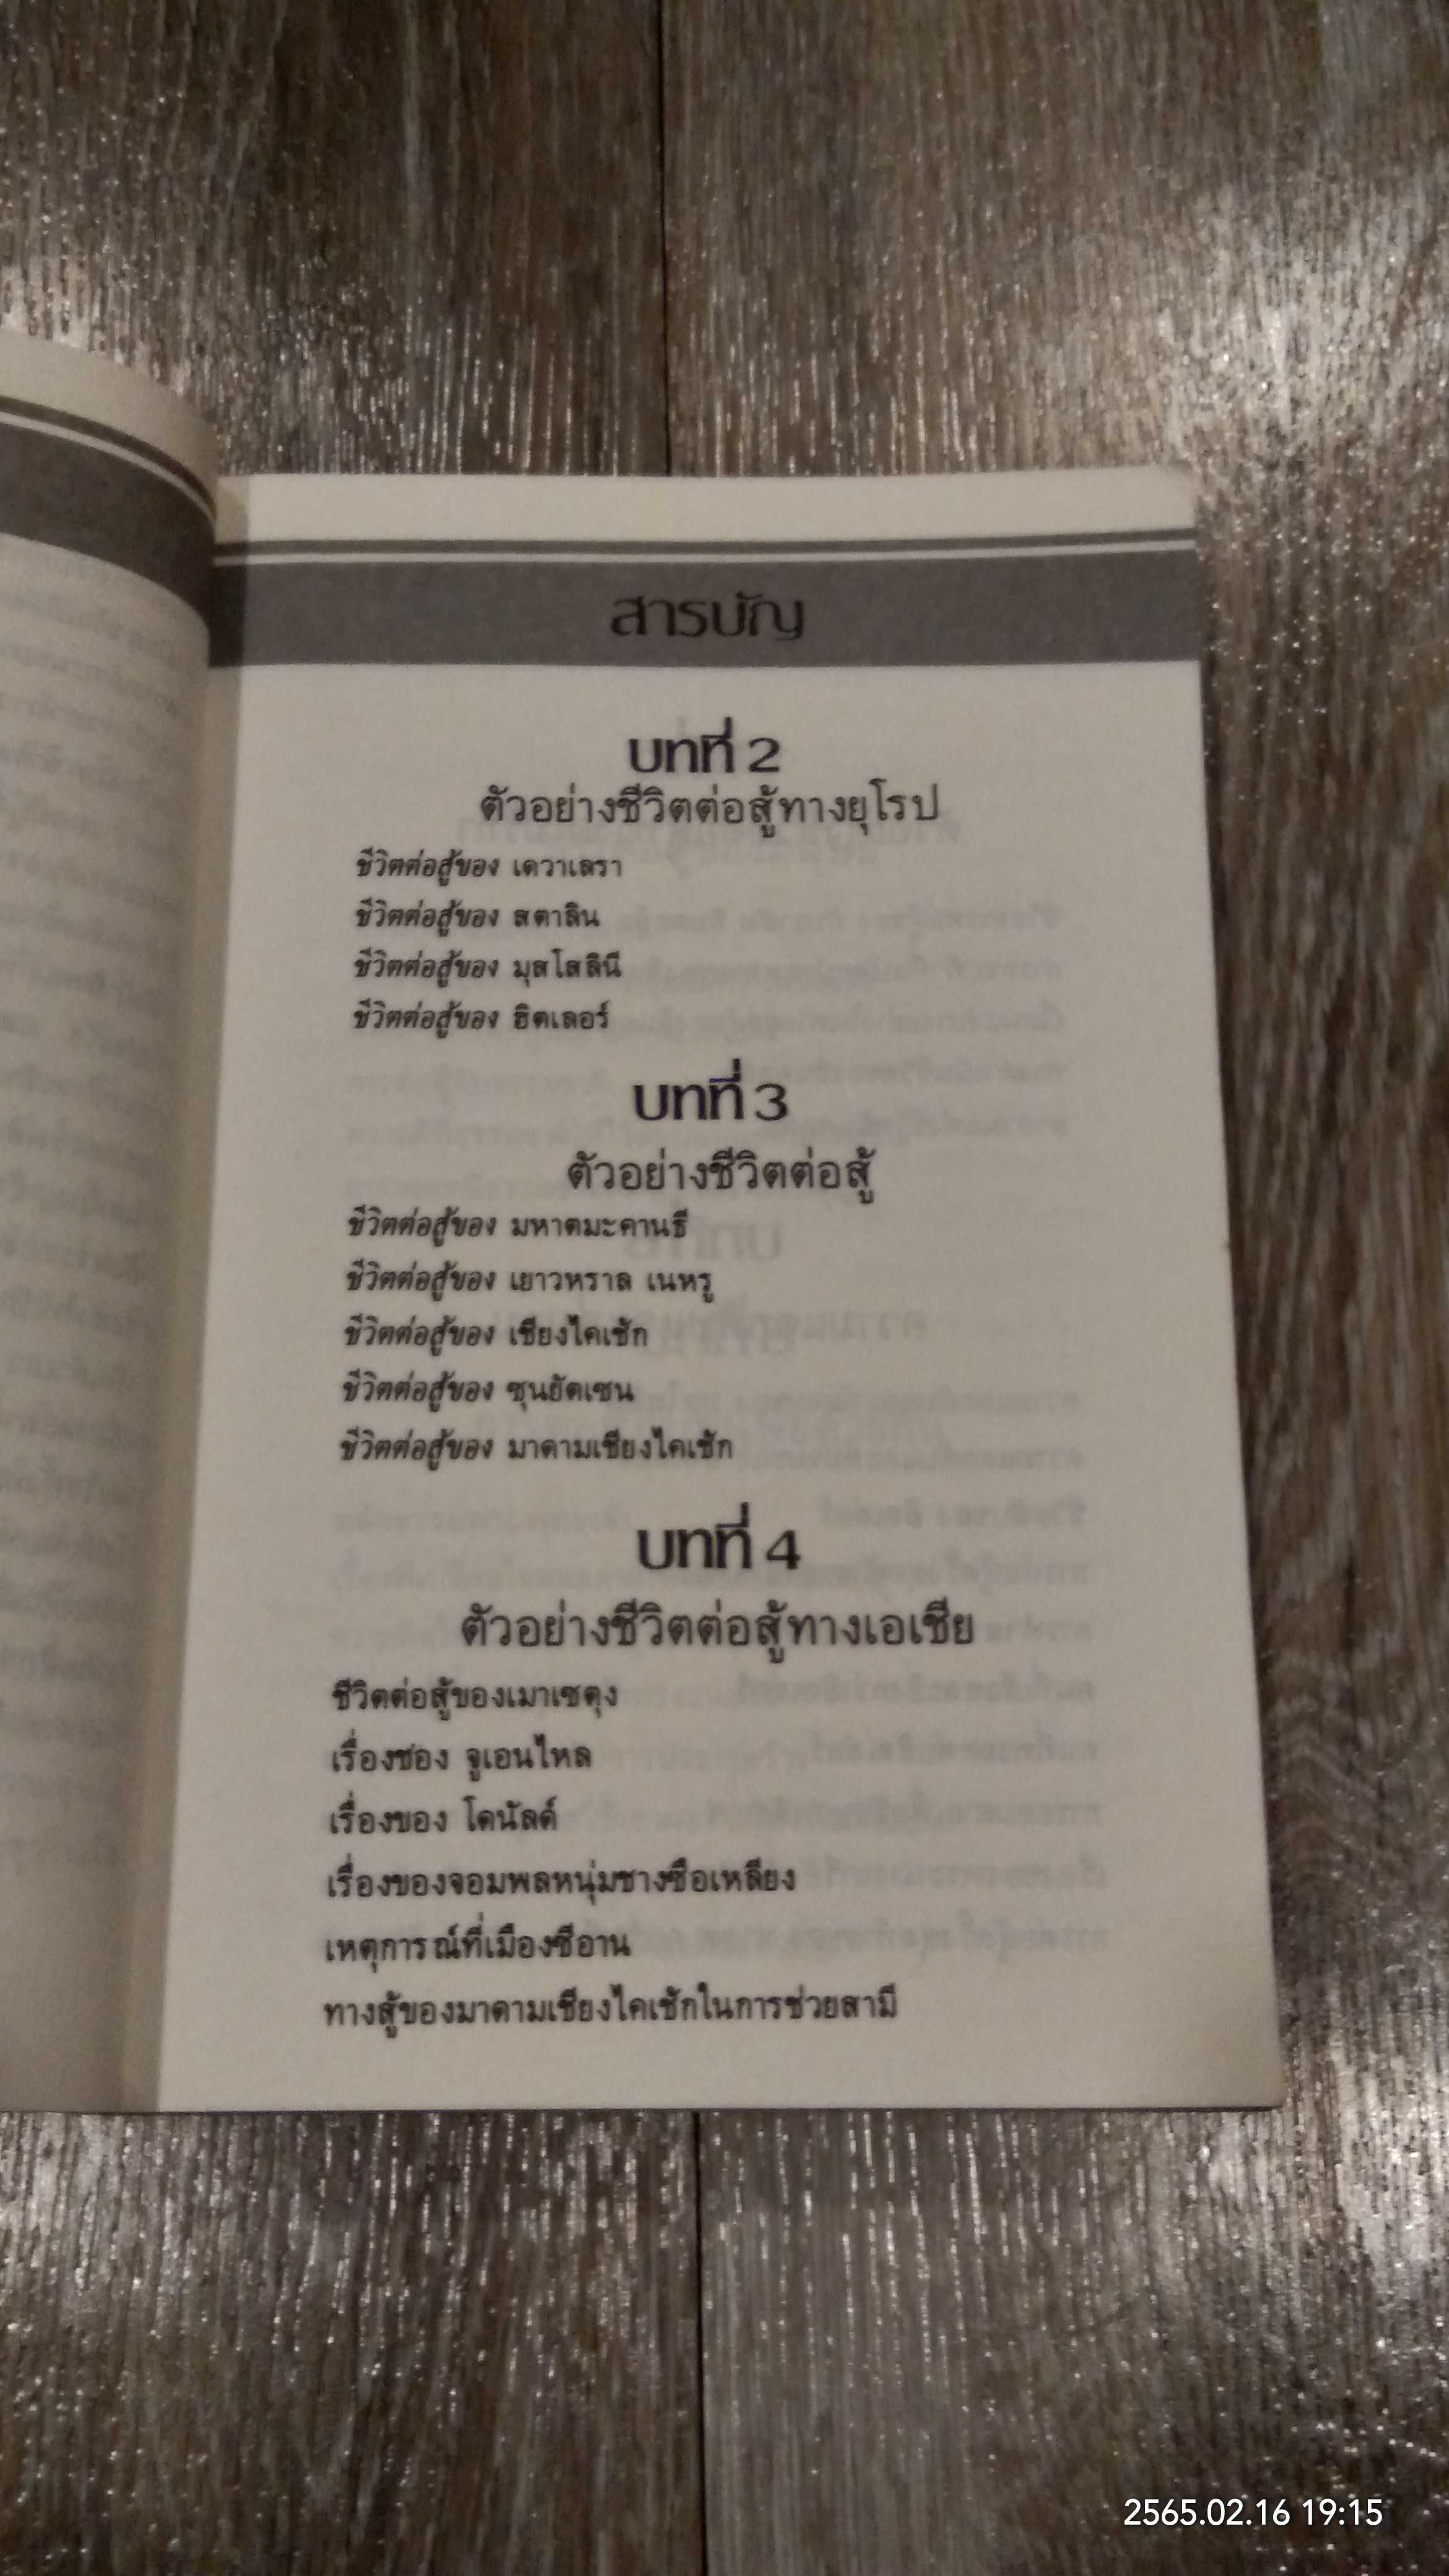 สารบัญ
บทที่ 2
ตัวอย่างชีวิตต่อสู้ทางยุโรป
ชีวิตต่อสู้ของ เดวาเลรา
ชีวิตต่อสู้ของ สตาลิน
ชีวิตต่อสู้ของ มุสโสลินี
ชีวิตต่อสู้ของ ฮิตเลอร์
บทที่ 3
ตัวอย่างชีวิตต่อสู้
ชีวิตต่อสู้ของ มหาตมะคานธี
ชีวิตต่อสู้ของ เยาวหราล เนหรู
ชีวิตต่อสู้ของ เชียงไคเช้ก
ชีวิตต่อสู้ของ ซุนยัดเซน
ชีวิตต่อสู้ของ มาดามเชียงไคเช้ก
บทที่ 4
ตัวอย่างชีวิตต่อสู้ทางเอเชีย
ชีวิตต่อสู้ของเมาเซตุง
เรื่องชอง จูเอนไหล
เรื่องของ โดนัลด์
เรื่องของจอมพลหนุ่มชางซือเหลียง
เหตุการณ์ที่เมืองซีอาน
ทางสู้ของมาดามเชียงไคเช้กในการช่วยสามี
2565.02.16 19:15